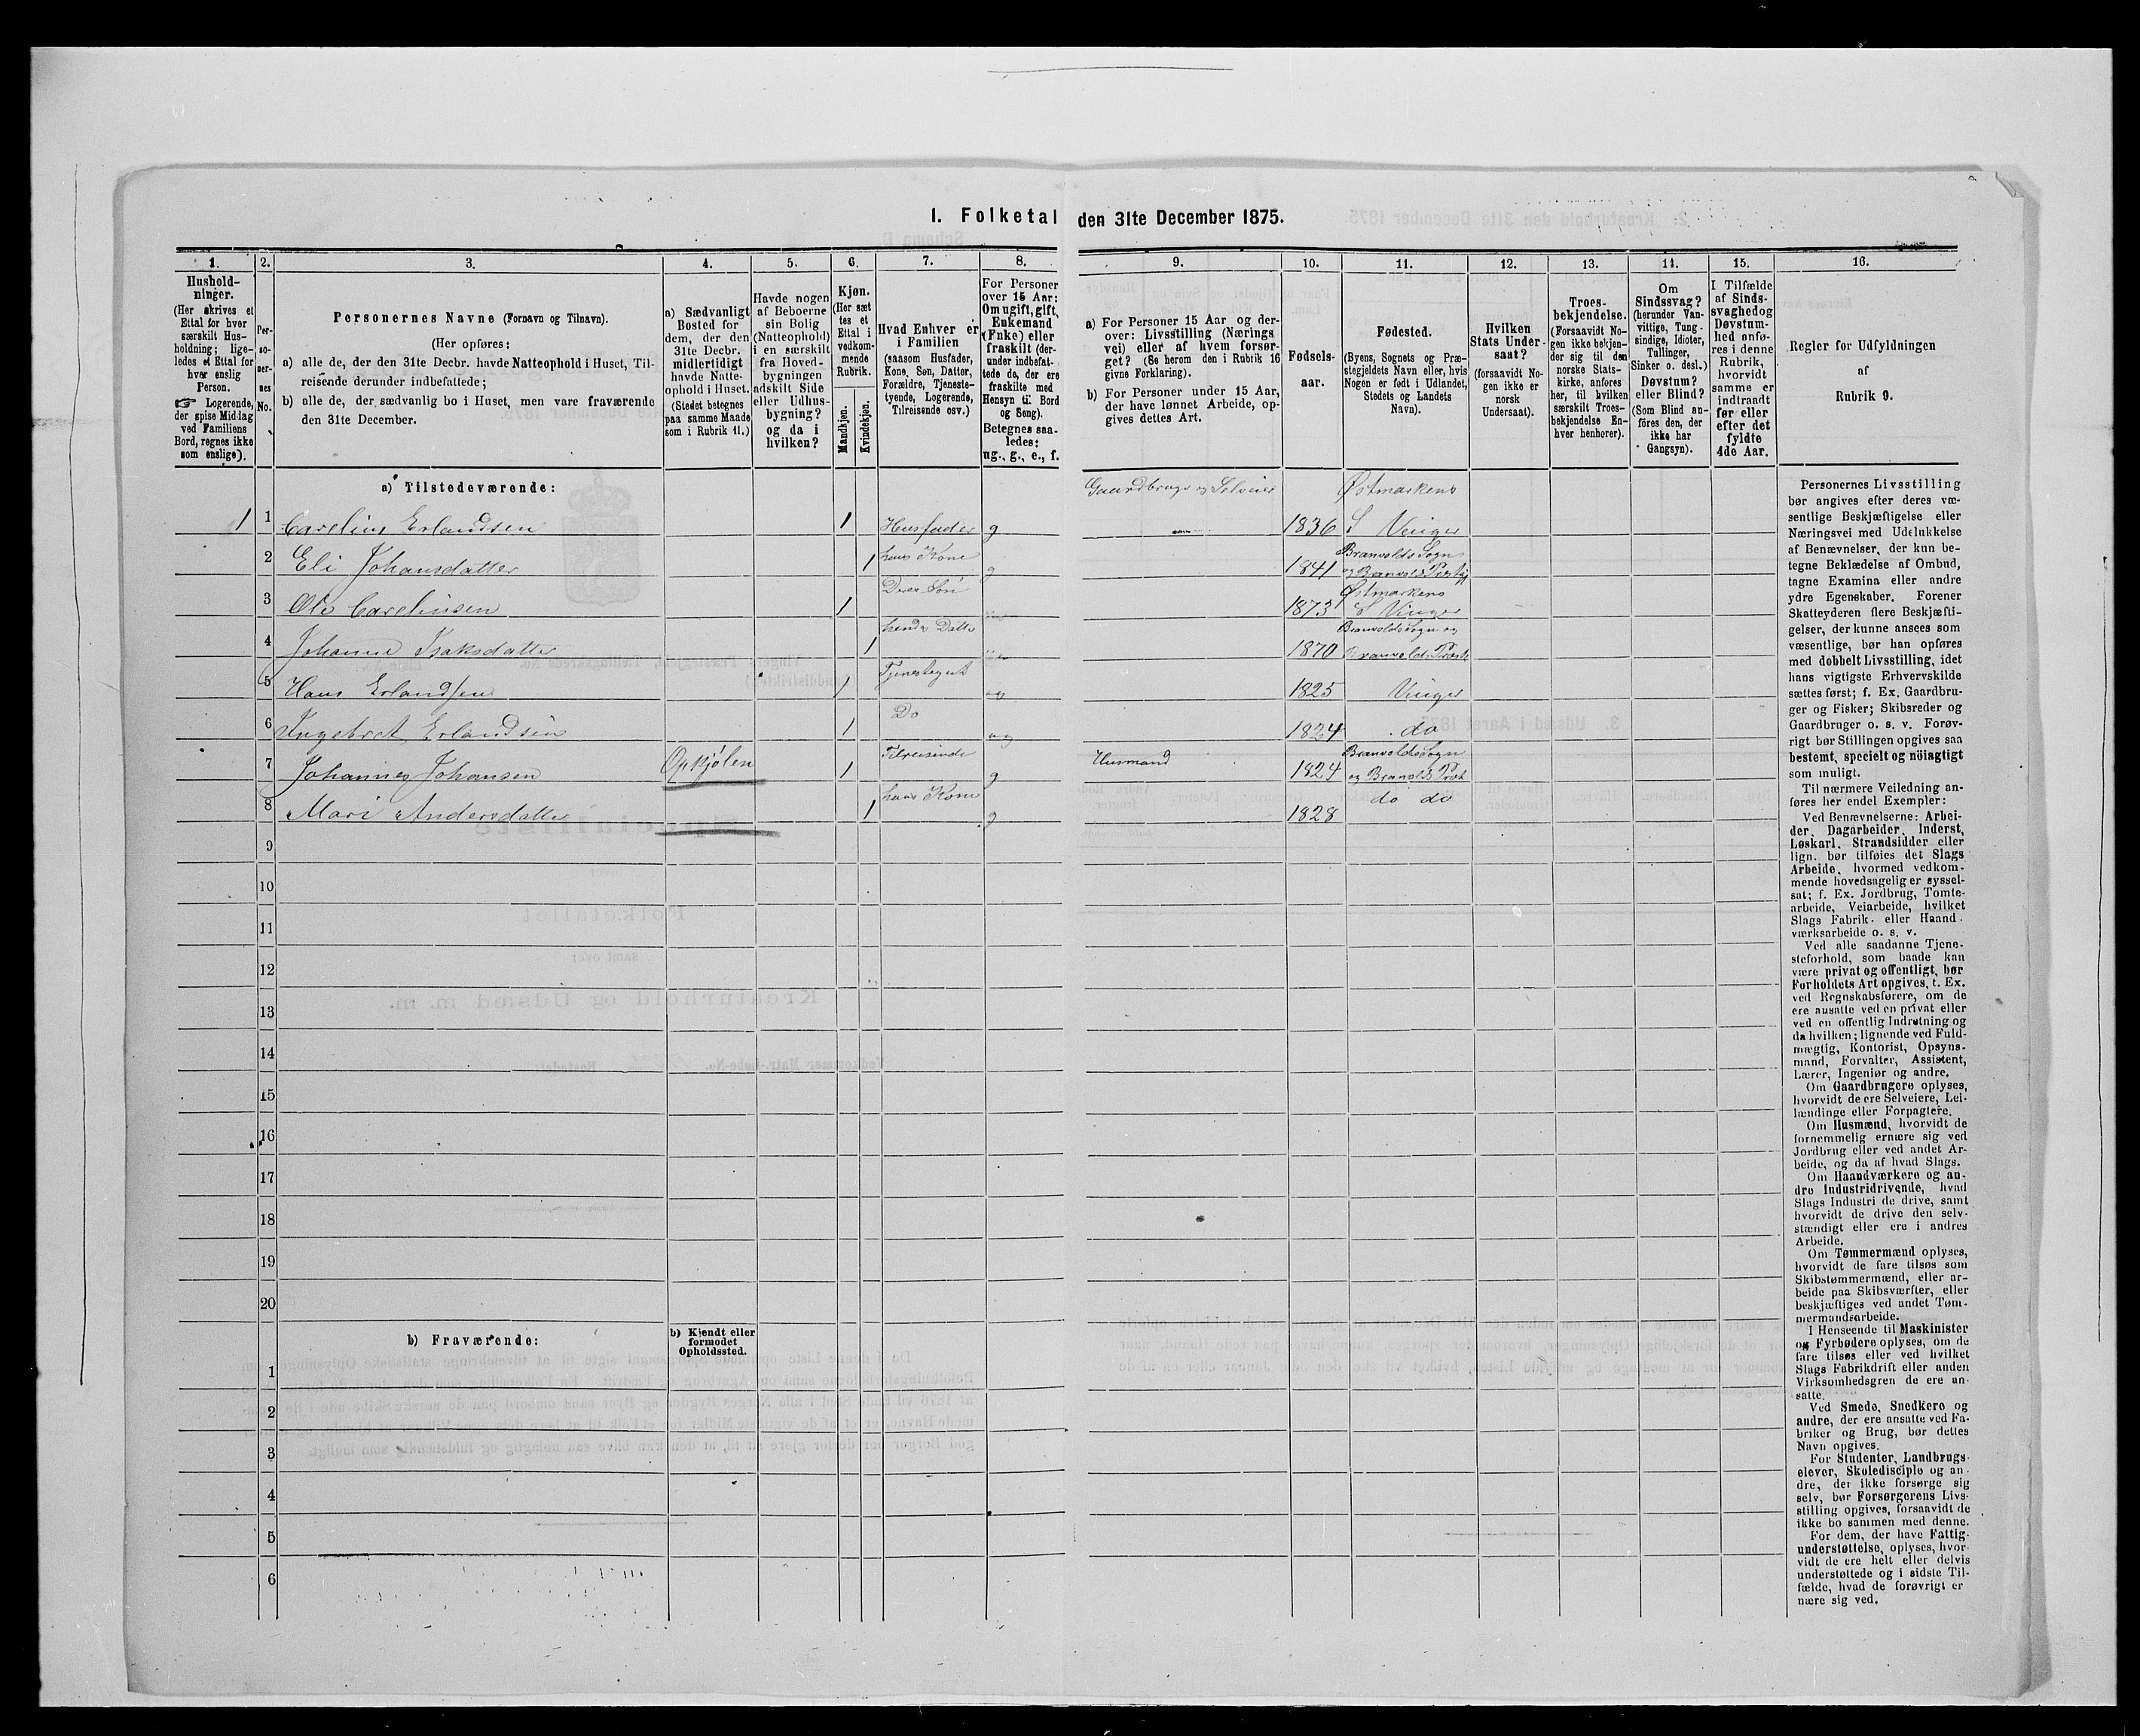 1. Folketal den 31te December 1875.
1.
Hushold-
ninger.
(Her skrives et
Ettal for hver
særskilt Hus-
holdning; lige-
ledes et Ettal for
hver enslig
Person.
☞ Logerende,
der spise Middag
ved Familiens
Bord, regnes ikke
som enslige).
2.
Per-
so-
ner-
nes
No.
3.
Personernes Navne (Fornavn og Tilnavn).
(Her opføres:
a) alle de, der den 31te Decbr. havde Natteophold i Huset, Til-
reisende derunder indbefattede;
b) alle de, der sædvanlig bo i Huset, men vare fraværende
den 31te December.
4.
a) Sædvanligt
Bosted for
dem, der den
31te Decbr.
midlertidigt
havde Natte-
ophold i Huset.
(Stedet betegnes
paa samme Maade
som i Rubrik 11.)
5.
Havde nogen
af Beboerne
sin Bolig
(Natteophold)
i en særskilt
fra Hoved-
bygningen
adskilt Side
eller Udhus-
bygning?
og da i
hvilken?
6.
Kjøn.
(Her sæt
tes et
Ettal i
vedkom-
mende
Rubrik.
Mandkjøn.
Kvindekjøn.
7.
Hvad Enhver er
i Familien
(saasom Husfader,
Kone, Søn, Datter,
Forældre, Tjeneste-
tyende, Logerende,
Tilreisende osv.)
8.
For Personer
over 15 Aar:
Om ugift, gift,
Enkemand
(Enke) eller
fraskilt (der-
under indbefat-
tede de, der ere
fraskilte med
Hensyn til Bord
og Seng).
Betegnes saa-
ledes:
ug., g., e., f.
9.
a) For Personer 15 Aar og der-
over: Livsstilling (Nærings
vei) eller af hvem forsør-
get? (Se herom den i Rubrik 16
givne Forklaring).
b) For Personer under 15 Aar,
der have lønnet Arbeide, op-
gives dettes Art.
10.
Fødsels-
aar.
11.
Fødested.
(Byens, Sognets og Præ-
stegjeldets Navn eller, hvis
Nogen er født i Udlandet,
Stedets og Landets
Navn).
12.
Hvilken
Stats Under-
saat?
(forsaavidt No-
gen ikke er
norsk
Undersaat).
13.
Troes-
bekjendelse.
(Forsaavidt No-
gen ikke bekjen-
der sig til den
norske Stats-
kirke, anføres
her, til hvilken
særskilt Troes-
bekjendelse En-
hver henhører).
14.
Om
Sindssvag?
(herunder Van-
vittige, Tung-
sindige, Idioter,
Tullinger,
Sinker o. desl.)
Døvstum?
eller Blind?
(Som Blind an-
føres den, der
ikke har
Gangsyn).
15.
I Tilfælde
af Sinds-
svaghed og
Døvstum-
hed anfø-
res i denne
Rubrik,
hvorvidt
samme er
indtraadt
før eller
efter det
fyldte
4de Aar.
16.
Regler for Udfyldningen
af
Rubrik 9.
a) Tilstedeværende:
1 1 Carelius Erlandsen 1 Husfader g Gaardbruger og Selveier 1836 Østmarkens S Vinger
2 Eli Johansdatter 1 hans Kone g 1841 Branvolds Sogn og Branvolds
3 Ole Careliusen 1 Deres Søn 1873 Østmarkens S Vinger
4 Johanne Isaksdatter 1 hendes Datter 1870 Branvolds Sogn og Branvolds
5 Hans Erlandsen 1 Tjenestegut ug 1825 Vinger
6 Ingebret Erlandsen 1 Do ug 1824 do
7 Johannes Johansen Opkjølen 1 Tilreisende g Husmand 1824 Branvolds Sogn og Branvolds
8 Mari Andersdatter 1 hans Kone g 1828 do do
9
10
11
12
13
14
15
16
17
18
19
20
b) Fraværende:
b) Kjendt eller
formodet
Opholdssted.
1
2
3
4
5
6
Personernes Livsstilling
bør angives efter deres væ-
sentlige Beskjæftigelse eller
Næringsvei med Udelukkelse
af Benævnelser, der kun be-
tegne Beklædelse af Ombud,
tagne Examina eller andre
ydre Egenskaber. Forener
Skatteyderen flere Beskjæfti-
gelser, der kunne ansees som
væsentlige, bør han opføres
med dobbelt Livsstilling, idet
hans vigtigste Erhvervskilde
sættes først; f. Ex. Gaardbru-
ger og Fisker; Skibsreder og
Gaardbruger o. s. v. Forøv-
rigt bør Stillingen opgives saa
bestemt, specielt og nöiagtigt
som muligt.
Til nærmere Veiledning an-
føres her endel Exempler:
Ved Benævnelserne: Arbei-
der, Dagarbeider, Inderst,
Løskarl, Strandsidder eller
lign. bør tilføies det Slags
Arbeide, hvormed vedkom-
mende hovedsagelig er syssel-
sat; f. Ex. Jordbrug, Tomte-
arbeide, Veiarbeide, hvilket
Slags Fabrik- eller Haand-
værksarbeide o. s. v.
Ved alle saadanne Tjene-
steforhold, som baade kan
være privat og offentligt, bør
Forholdets Art opgives, t. Ex.
ved Regnskabsførere, om de
ere ansatte ved en privat eller
ved en offentlig Indretning og
da hvilken; lignende ved Fuld-
mægtig, Kontorist, Opsyns-
mand, Forvalter, Assistent,
Lærer, Ingeniør og andre.
Om Gaardbrugere oplyses,
hvorvidt de ere Selveiere, Lei-
lændinge eller Forpagtere.
Om Husmænd, hvorvidt de
fornemmelig ernære sig ved
Jordbrug eller ved andet Ar-
beide, og da af hvad Slags.
Om Haandværkere og an-
dre Industridrivende, hvad
Slags Industri de drive, samt
hvorvidt de drive den selv-
stændigt eller ere i andres
Arbeide.
Om Tømmermænd oplyses,
hvorvidt de fare tilsøs som
Skibstømmermænd, eller ar-
beide paa Skibsværfter, eller
beskjæftiges ved andet Tøm-
mermandsarbeide.
I Henseende til Maskinister
og Fyrbødere oplyses, om de
fare tilsøs eller ved hvilket
Slags Fabrikdrift eller anden
Virksomhedsgren de ere an-
satte.
Ved Smede, Snedkere og
andre, der ere ansatte ved Fa-
briker og Brug, bør dettes
Navn opgives.
For Studenter, Landbrugs-
elever, Skoledisciple og an-
dre, der ikke forsørge sig
selv, bør Forsørgerens Livs-
stilling opgives, forsaavidt de
ikke bo sammen med denne.
For dem, der have Fattig-
understøttelse, oplyses, hvor-
vidt de ere helt eller delvis
understøttede og i sidste Til-
fælde, hvad de forøvrigt er
nære sig ved.